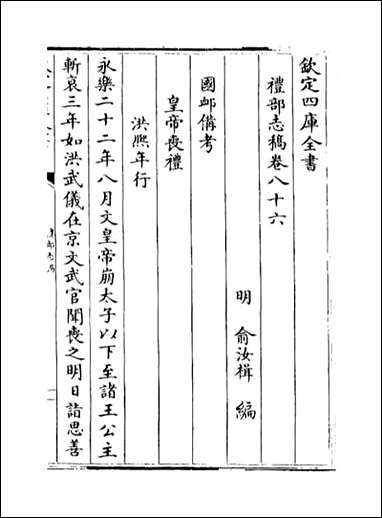 欽定四庫全書
禮部志稿卷八十六
明 俞汝楫 編
國邺備考
皇帝喪禮
洪熙年行
永樂二十二年八月文皇帝崩太子以下至諸王公主
斬衰三年如洪武儀在京文武官聞喪之明日詣思善